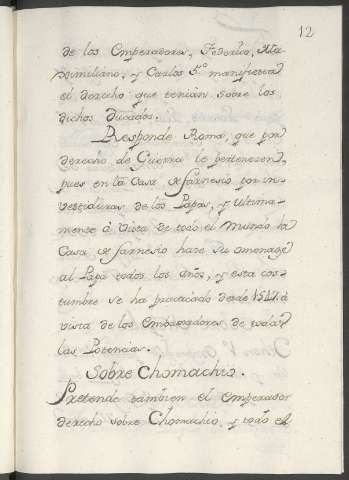 12
de los Emperadores, Federico, Ma-
ximiliano, y Carlos 5º manifiesta
el derecho que tenian sobre los
dichos Ducados.
Responde Roma, que por
derecho de Guerra le pertenecen,
pues en la Casa de Farnesio por in-
vestiduras de los Papas, y ultima-
mente â vista de todo el Mundo la
Casa de Farnesio hace su omenage
al Papa todos los años, y esta cos-
tumbre se ha practicado desde 1517. à
vista de los Embaxadores de todas
las Potencias.
Sobre Chomachio.
Pretende tambien el Emperador
derecho sobre Chomachio, y todo el